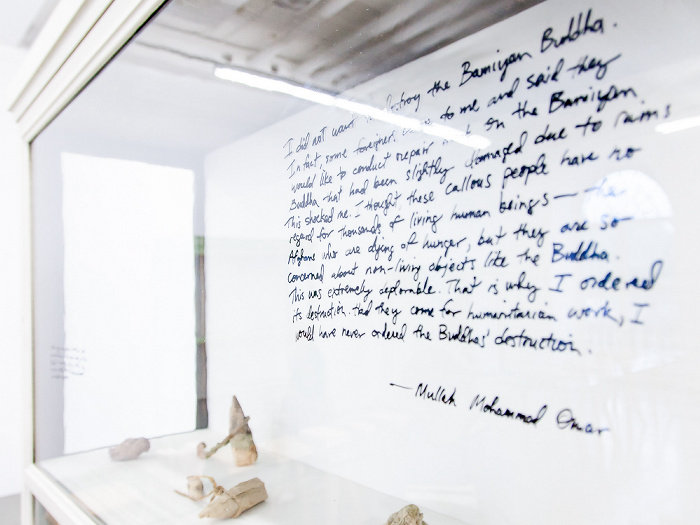 I did not want to destroy the Bamiyan Buddha.
In fact, some foreigners came to me and said they
would like to conduct repair work on the Bamiyan
Buddha that had been slightly damaged due to rains
This shocked me. I thought these callous people have no
regard for thousands of living human beings — the
Afghans who are dying of hunger, but they are so
concerned about non-living objects like the Buddha.
This was extremely deplorable. That is why I ordered
its destruction. Had they come for humanitarian work, I
would have never ordered the Buddhas' destruction.
— Mullah Mohammad Omar